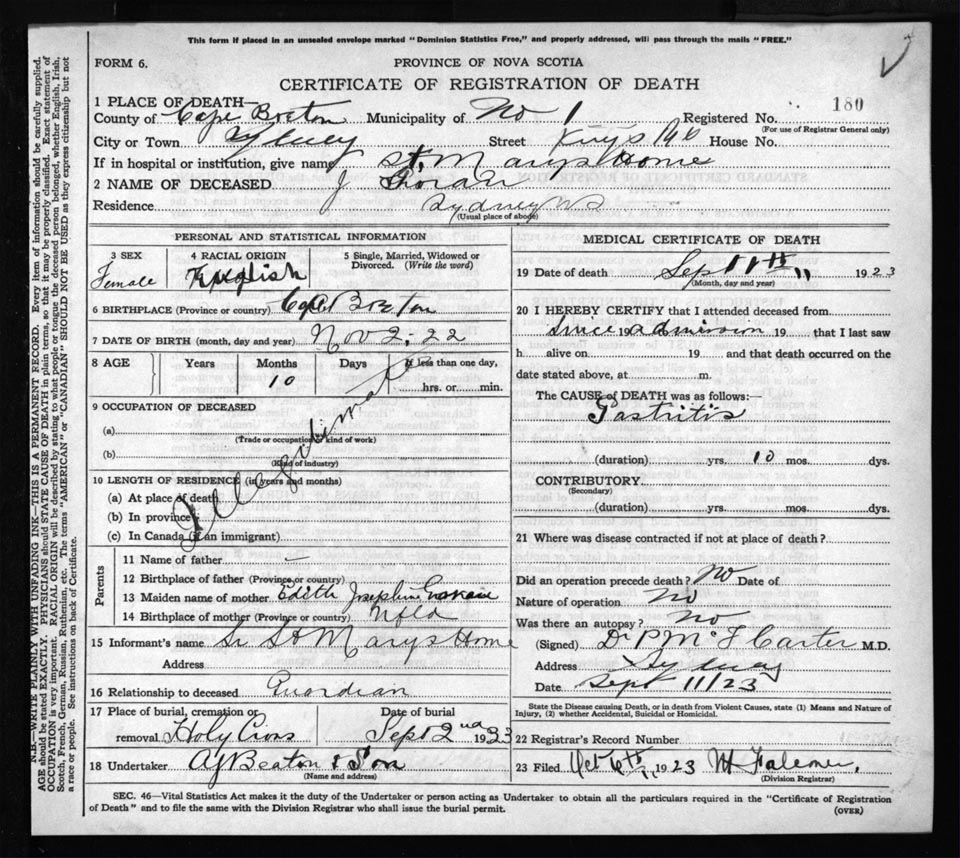 This form if placed in an unsealed envelope marked "Dominion Statistics Free," and properly addressed, will pass through the mails "FREE."
FORM 6.
PROVINCE OF NOVA SCOTIA
CERTIFICATE OF REGISTRATION OF DEATH
180
1 PLACE OF DEATH—
County of Cape Breton Municipality of No 1 Registered No.
(For use of Registrar General only)
City or Town Sydney Street Kings Rd House No.
If in hospital or institution, give name St. Marys Home
2 NAME OF DECEASED J
Residence Sydney NS
(Usual place of abode)
PERSONAL AND STATISTICAL INFORMATION
3 SEX 4 RACIAL ORIGIN 5 Single, Married, Widowed or Divorced. (Write the word)
Female English
6 BIRTHPLACE (Province or country) Cape Breton
7 DATE OF BIRTH (month, day and year) Nov 2-22
8 AGE Years Months Days If less than one day,
10 hrs. or min.
Illegitimate
9 OCCUPATION OF DECEASED
(a)
(Trade or occupation kind of work)
(b)
(Kind of industry)
10 LENGTH OF RESIDENCE (in years and months)
(a) At place of death
(b) In province
(c) In Canada (if an immigrant)
Parents
11 Name of father —
12 Birthplace of father (Province or country)
13 Maiden name of mother Edith Josephine
14 Birthplace of mother (Province or country) Nfld
15 Informant's name Sr St Marys Home
Address
16 Relationship to deceased Guardian
17 Place of burial, cremation or removal Holy Cross
Date of burial Sept 2nd 1933
18 Undertaker AJ Beaton & Son
(Name and address)
MEDICAL CERTIFICATE OF DEATH
19 Date of death Sept 11th 11 1923
(Month, day and year)
20 I HEREBY CERTIFY that I attended deceased from
Since 19 admission 19 that I last saw
h alive on 19 and that death occurred on the
date stated above, at m.
The CAUSE of DEATH was as follows:—
Gastritis
(duration) yrs. 10 mos. dys.
CONTRIBUTORY
(Secondary)
(duration) yrs. mos. dys.
21 Where was disease contracted if not at place of death?
Did an operation precede death? No Date of
Nature of operation No
Was there an autopsy? No
(Signed) Dr P McF Carter M.D.
Address Sydney
Date Sept 11/23
State the Disease causing Death, or in death from Violent Causes, state (1) Means and Nature of
Injury, (2) whether Accidental, Suicidal or Homicidal.
22 Registrar's Record Number
23 Filed Oct 6th 1923 W Falconer,
(Division Registrar)
SEC. 46—Vital Statistics Act makes it the duty of the Undertaker or person acting as Undertaker to obtain all the particulars required in the "Certificate of Registration
of Death" and to file the same with the Division Registrar who shall issue the burial permit.
(OVER)
N.B.—WRITE PLAINLY WITH UNFADING INK—THIS IS A PERMANENT RECORD. Every item of information should be carefully supplied.
AGE should be stated EXACTLY. PHYSICIANS should STATE CAUSE OF DEATH in plain terms, so that it may be properly classified. Exact statement of
OCCUPATION is very important. RACIAL ORIGIN will be described by stating to what people or tongue the deceased person belonged, whether English, Irish,
Scotch, French, German, Russian, Ruthenian, etc. The terms "AMERICAN" or "CANADIAN" SHOULD NOT BE USED as they express citizenship but not
a race or people. See instructions on back of Certificate.